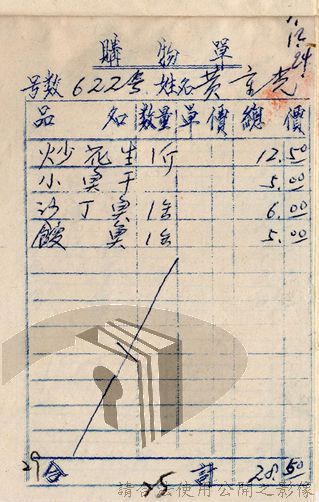 11.
12
24
購物單
号数 622号 姓名 黄
品名 数量 單價 總價
炒花生 1斤 12.50
小魚干 5.00
沙丁魚 1合 6.00
鰻魚 1合 5.00
29 合計 28.50
25
請合法使用公開之影像